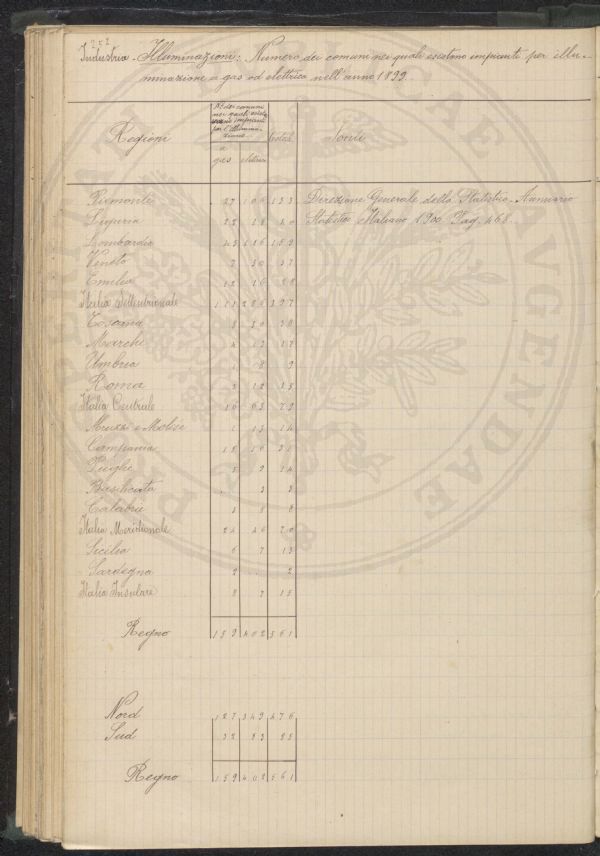 Industria - Illuminazioni: Numero dei comuni nei quali esistono impianti per illu-
minazione a gas od elettrica nell'anno 1899.
Regioni N. dei comuni nei quali esistono impianti per l'illuminazione Totale Fonti
a gas elettrica
Piemonte 27 106 133 Direzione Generale della Statistica - Annuario
Liguria 22 18 40 Statistico Italiano 1900 Pag. 468
Lombardia 43 116 159
Veneto 7 30 37
Emilia 12 16 28
Italia Settentrionale 111 286 397
Toscana 8 30 38
Marche 4 13 17
Umbria 1 8 9
Roma 3 12 15
Italia Centrale 16 63 79
Abruzzi e Molise 1 13 14
Campania 15 16 31
Puglie 5 9 14
Basilicata
Calabrie
Italia Meridionale 24 46 70
Sicilia 6 7 13
Sardegna 2 .. 2
Italia Insulare 8 7 15
Regno 159 402 561
Nord 127 349 476
Sud 32 53 85
Regno 159 402 561
PATRIAE
AVENDAE